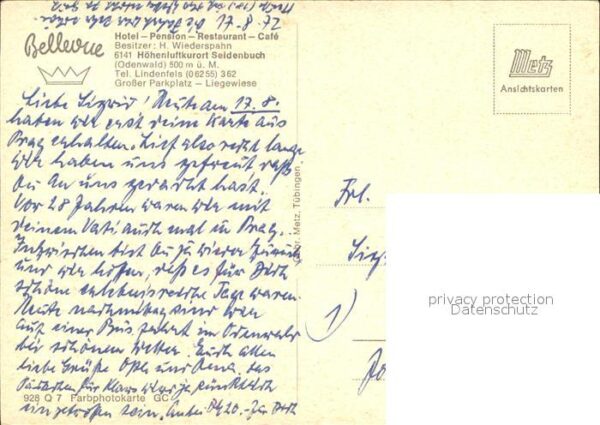 17-8-72
Bellevue
Hotel – Pension – Restaurant – Café
Besitzer: H. Wiederspahn
6141 Höhenluftkurort Seidenbuch
(Odenwald) 500 m ü. M.
Tel. Lindenfels (06255) 362
Großer Parkplatz – Liegewiese
Metz
Ansichtskarten
Liebe Sigrid! Heute am 17.8.
haben wir erst deine Karte aus
Prag erhalten. Lief also recht lange
wir haben uns gefreut daß
Du an uns gedacht hast.
Vor 28 Jahren waren wir mit
deinem Vati auch mal in Prag.
Inzwischen bist Du ja wieder zurück
und wir hoffen, daß es für Dich
schöne erlebnisreiche Tage waren.
Heute nachmittag sind wir
auf einer Bus fahrt im Odenwald
bei schönem Wetter. Euch allen
liebe Grüße Opa und Oma.
für Klaus
eingetroffen sein.
Metz, Tübingen
Frl.
928 Q 7 Farbphotokarte GC
privacy protection
Datenschutz